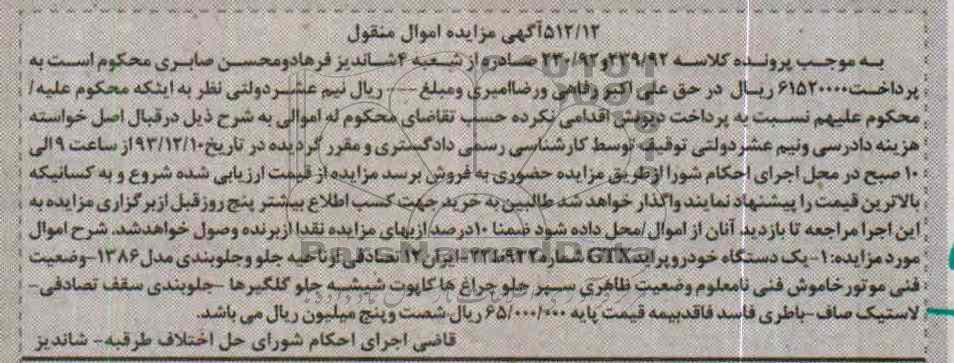 ۵۱۲/۱۲آگهی مزایده اموال منقول
به موجب پرونده کلاسه ۲۳۹/۹۲و۲۳۰/۹۲ صادره از شعبه ۴شاندیز فرهادومحسن صابری محکوم است به
پرداخت۶۱۵۲۰۰۰۰ ریال در حق علی اکبر رفاهی ورضاامیری ومبلغ --- ریال نیم عشردولتی نظر به اینکه محکوم علیه/
محکوم علیهم نسبت به پرداخت دیونش اقدامی نکرده حسب تقاضای محکوم له اموالی به شرح ذیل درقبال اصل خواسته
هزینه دادرسی ونیم عشردولتی توقیف توسط کارشناسی رسمی دادگستری و مقرر گردیده در تاریخ۹۳/۱۲/۱۰از ساعت ۹ الی
۱۰ صبح در محل اجرای احکام شورا ازطریق مزایده حضوری به فروش برسد مزایده از قیمت ارزیابی شده شروع و به کسانیکه
بالاترین قیمت را پیشنهاد نمایند واگذار خواهد شد طالبین به خرید جهت کسب اطلاع بیشتر پنج روزقبل ازبرگزاری مزایده به
این اجرا مراجعه تا بازدید آنان از اموال /محل داده شود ضمنا ۱۰درصد ازبهای مزایده نقدا ازبرنده وصول خواهدشد. شرح اموال
مورد مزایده:۱-یک دستگاه خودروپراید GTXبه شماره ۹۳۲ط۲۲-ایران۱۲ تصادفی ازناحیه جلو وجلوبندی مدل۱۳۸۶-وضعیت
فنی موتورخاموش فنی نامعلوم وضعیت ظاهری سپر جلو چراغ ها کاپوت شیشه جلو گلگیرها -جلوبندی سقف تصادفی-
لاستیک صاف-باطری فاسد فاقدبیمه قیمت پایه ۶۵/۰۰۰/۰۰۰ ریال شصت وپنج میلیون ریال می باشد.
قاضی اجرای احکام شورای حل اختلاف طرقبه- شاندیز
ParsNamadData